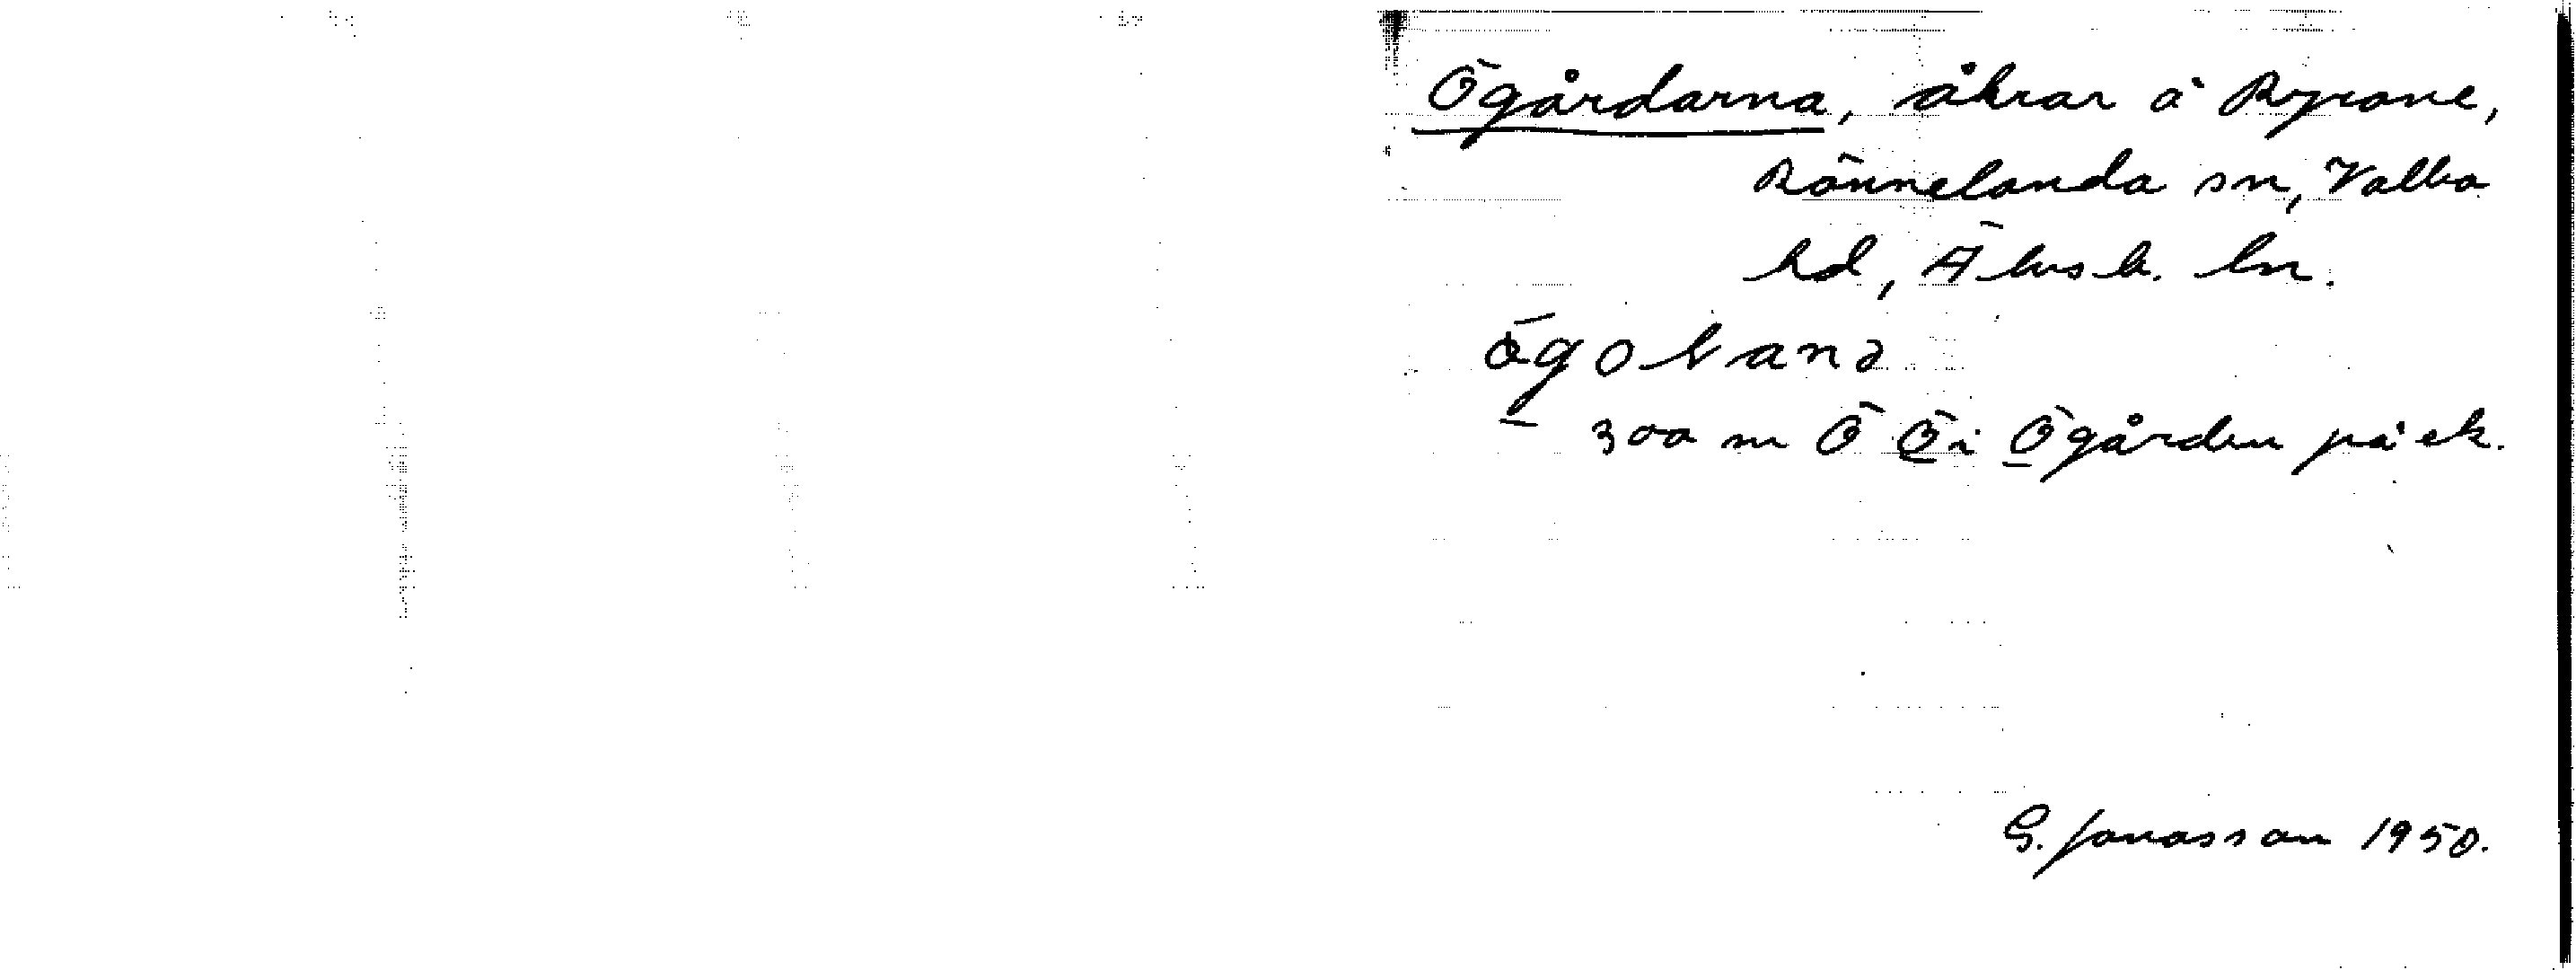 Ögårdarna, åkrar å Ryrane,
Rännelanda sn, Valbo
hd, Älvsb. ln.
300 m Ö Ö i Ögården på ek.
G. Jonasson 1950.